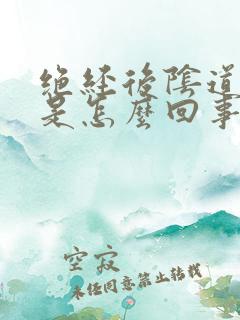 绝经后陰道
是怎麼回事
空寂
未经同意禁止转载